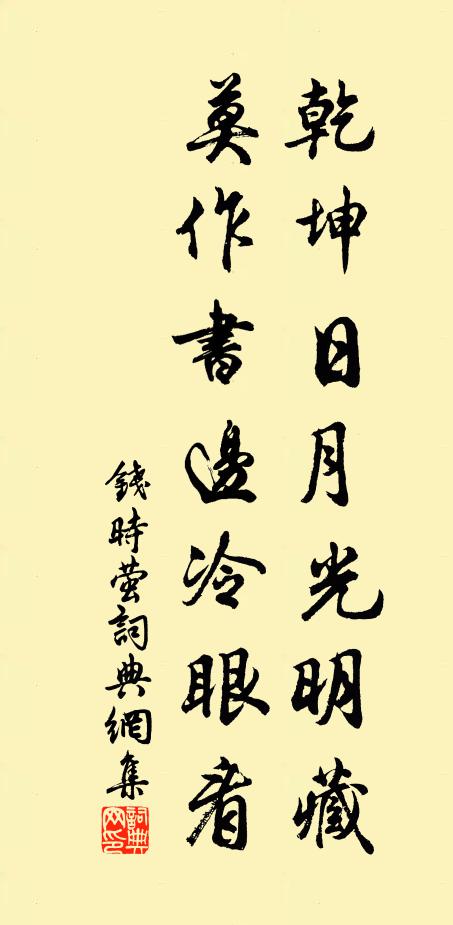 乾坤日月光明藏
莫作書邊冷眼看
錢時螢詞典網集
詞典网印